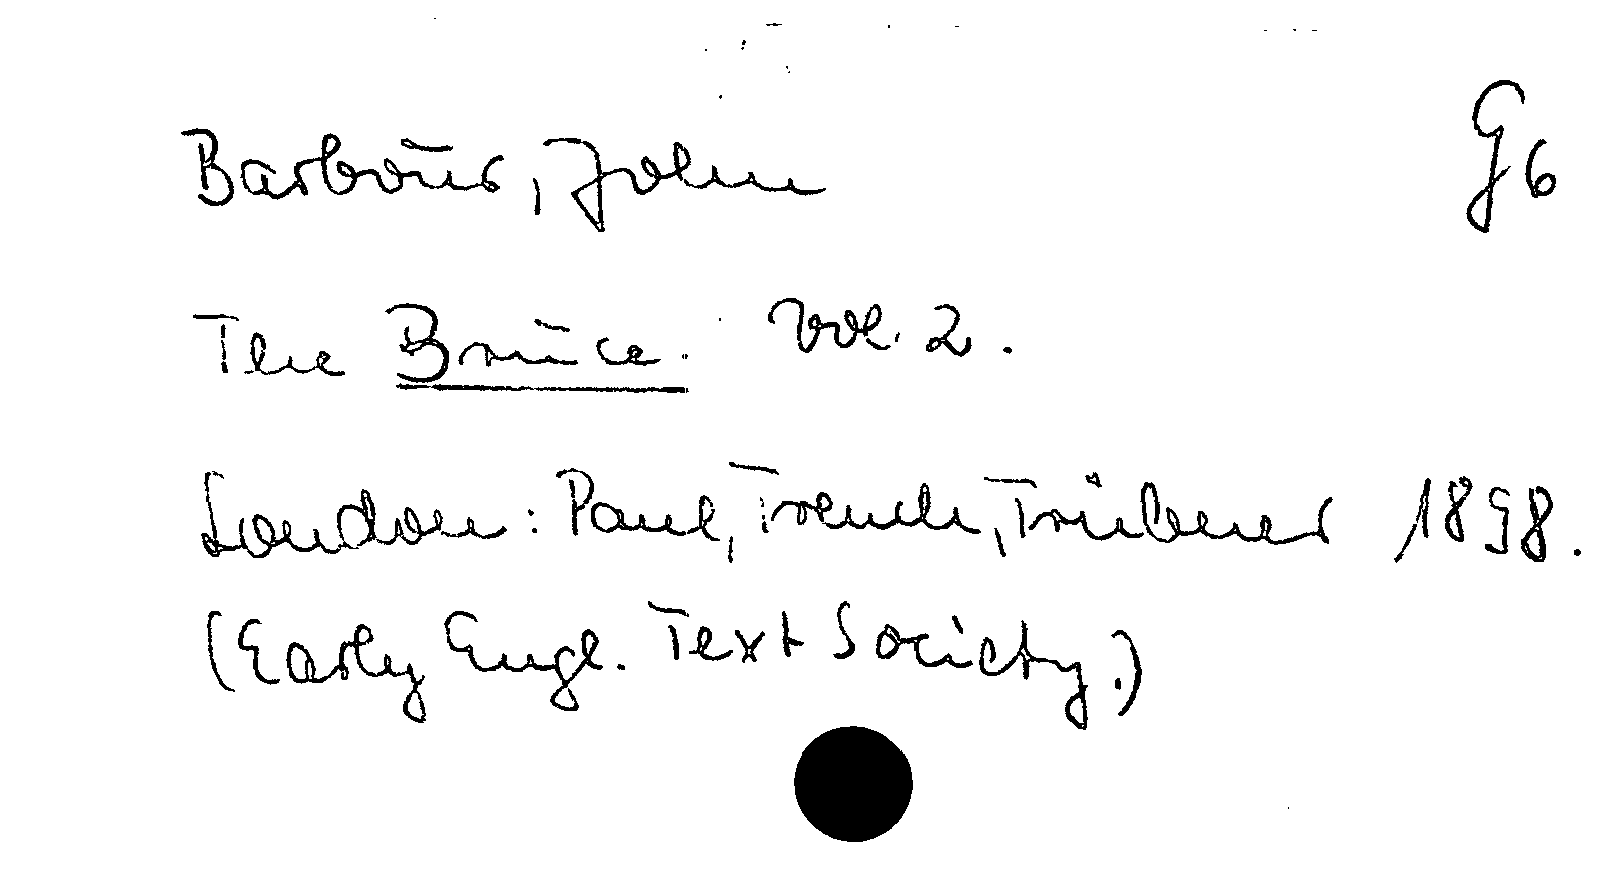 Barbour, John G6
The Bruce. Vol. 2.
London: Paul, Trench, Trübner 1898.
(Early Engl. Text Society.)